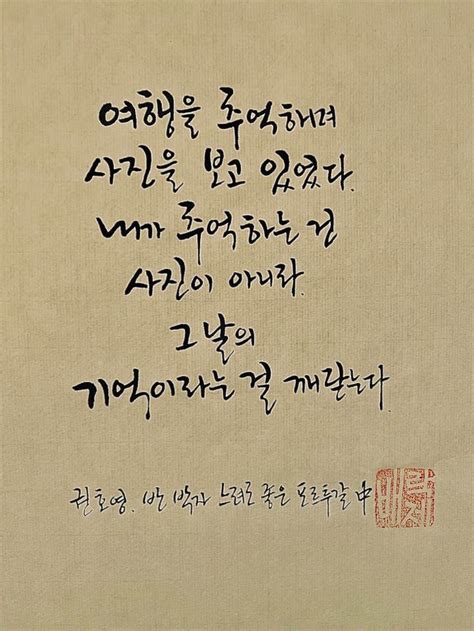 여행을 추억해려
사진을 보고 있었다.
내가 추억하는 건
사진이 아니라.
그날의
기억이라는 걸 깨닫는다.
권호영. 반 박자 느려도 좋은 포르투갈 中